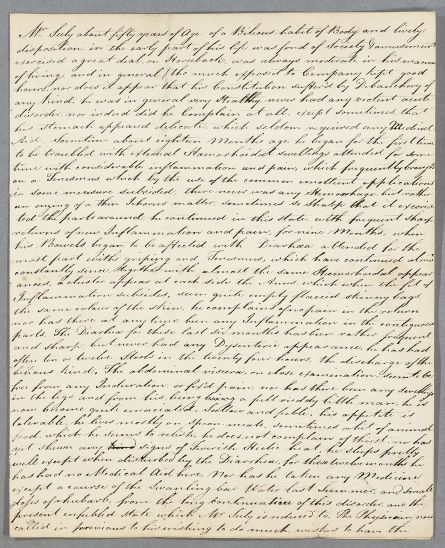 Mr. Suly about fifty years of Age, of a Bilious habit of Body and lively
disposition, in the early part of his life was fond of Society & amusement
exercised a great deal, on Horseback, was always moderate in his manner
of living, and in general (tho much exposed to Company) kept good
hours, nor does it appear that his Constitution suffer'd by Debauchery of
any kind, he was in general very Healthy never had any violent acute
disorder, nor indeed did he Complain at all, except sometimes that
his Stomach appeared delicate, which seldom required any Medical
Aid. Sometime about eighteen Months ago, he began for the first time
to be troubled with external Hamorhoidal swellings, attended for some
time with considerable inflammation and pain, which frequently brought
on a Tenesmus which by the use of the common emollient applications
in some measure subsided, there never was any Hemorrhage but rather
an oozing of a thin Ichorous matter, sometimes so sharp that it excoria
ted the parts around, he continued in this state with frequent sharp
returns of new Inflammation and pain, for nine Months, when
his Bowels began to be affected with Diarhea attended for the
most part with griping and Tenesmus, which have continued almost
constantly since, together with almost the same Hemorhoidal appear
ances, a cluster appear at each side the Anus which when the fit of
Inflammation subsides, seem quite empty flaccid skinny bags
the same colour of the skin, he complains of no pain in the rectum
nor has there at any time been any Inflammation in the contiguous
parts. The Diarhea for these last six months has been rather frequent
and sharp, but never had any Dysenteric appearance, he has had
often ten or twelve Stools in the twenty four hours, the discharge of the
bilious kind, The abdominal viscera, on close examination, seem to be
free from any Induration, or fix'd pain, nor has there been any swellings
in the legs and from his being a full ruddy little man, he is
now become quite emaciated, Sallow and pale, his appetite is
tolerable, he lives mostly on spoon meats, sometimes a bit of animal
food, which he seems to relish, he does not complain of thirst, nor has
yet shewn any signs of Feverish Hectic heat, he sleeps pretty
well except when disturbed by the Diarrhea, for these twelve months he
has had no Medical Aid here, Nor has he taken any Medicine
except a course of the Swanling bar Water last Summer, and small
doses of rhubarb, from the long continuation of this disorder, and the
present enfeebled State which Mr Suly is reduced to, The Physician now
called in previous to his wishing to do much wished to have the